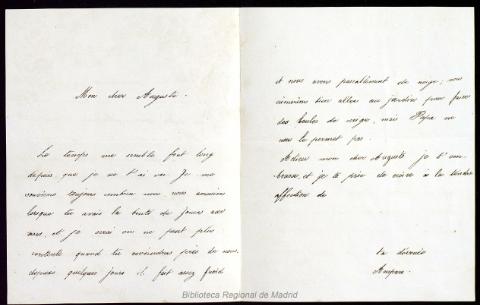 Mon cher Auguste.
Le temps me semble fort long
depuis que je ne t'ai vu. Je me
souviens toujours combien nous nous amusions
lorsque tu avais la bonté de jouer avec
nous, et je serai on ne peut plus
contente quand tu reviendras près de nous.
depuis quelques jours il fait assez froid
et nous avons passablement de neige; nous
aimerions bien aller au jardin pour faire
des boules de neige, mais Papa ne
nous le permet pas.
Adieu mon cher Auguste je t'em-
brasse, et je te prie de croire à la tendre
affection de
ta dévouée
Amparo.
Biblioteca Regional de Madrid